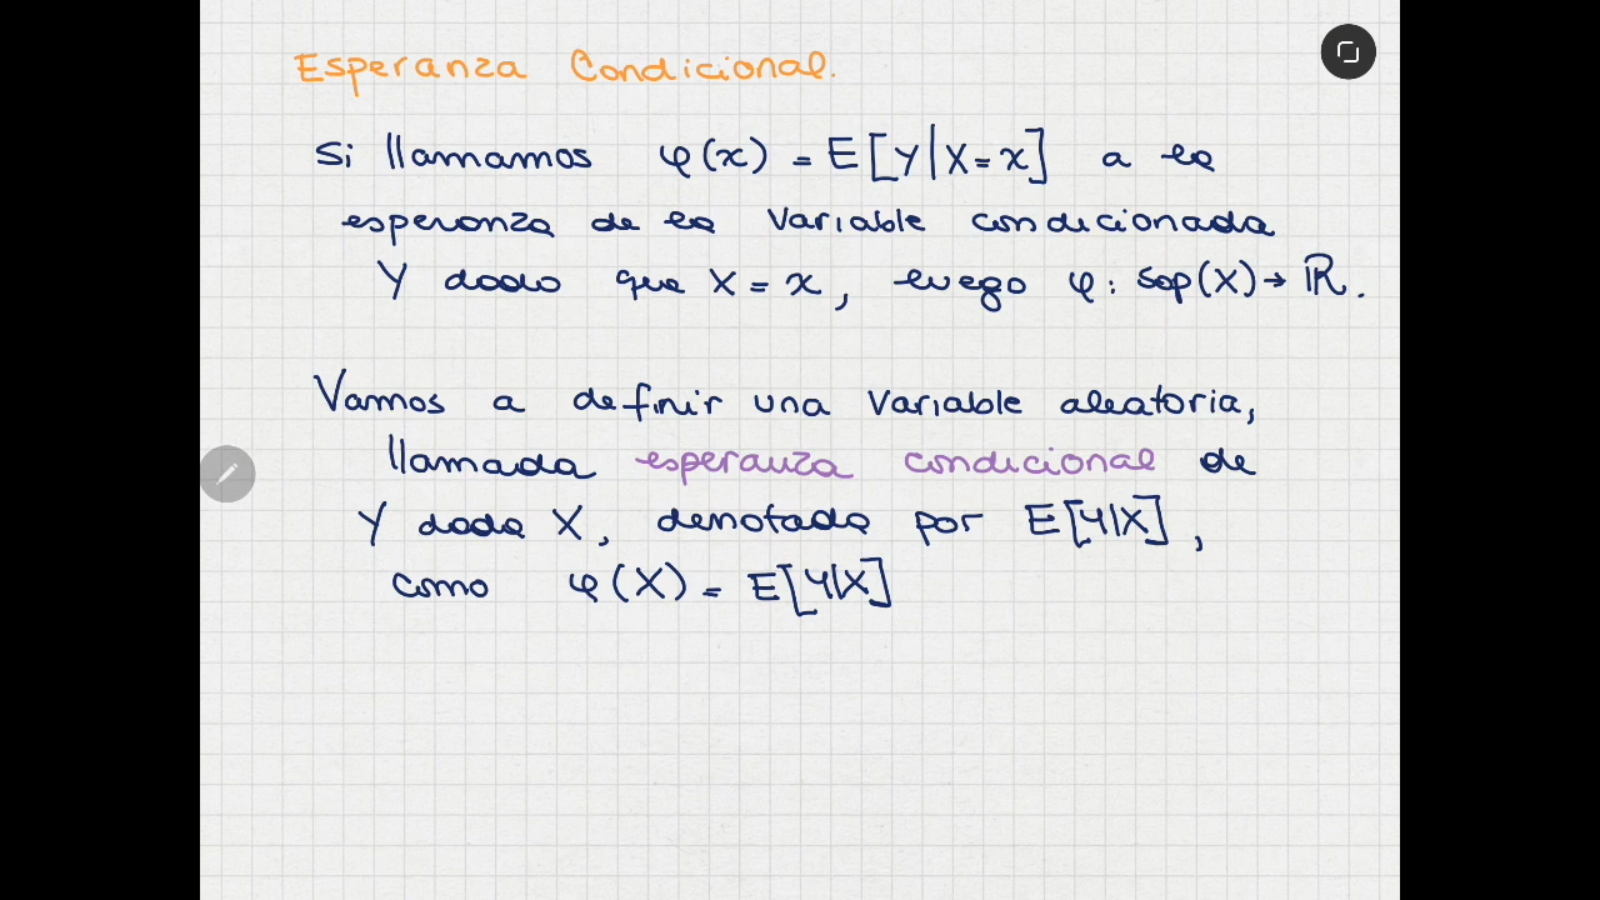 Esperanza Condicional.
Si llamamos φ(x) = E[Y|X=x] a la
esperanza de la variable condicionada
Y dado que X = x, luego φ: sop(X) → ℝ.
Vamos a definir una variable aleatoria,
llamada esperanza condicional de
Y dada X, denotada por E[Y|X],
como φ(X) = E[Y|X]